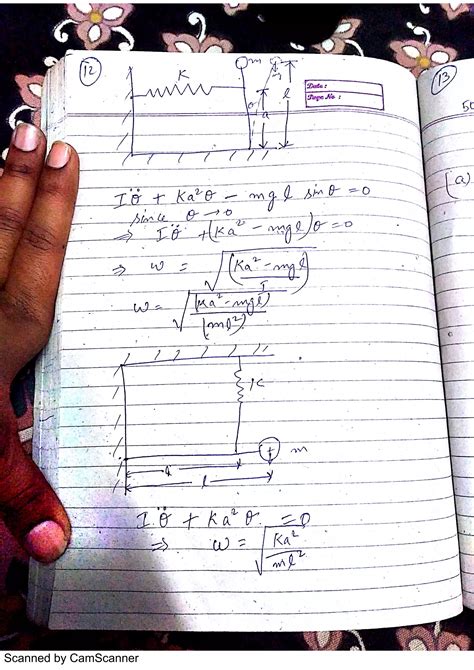 12
K
m
Date :
Page No :
l
θ
a
13
50
(a)
Iθ̈ + Ka²θ - mgl sinθ = 0
since θ → 0
⇒ Iθ̈ + (Ka² - mgl)θ = 0
⇒ ω = √((Ka² - mgl)/I)
ω = √((Ka² - mgl)/(ml²))
K
m
a
l
I.θ̈ + Ka²θ = 0
⇒ ω = √(Ka²/ml²)
Scanned by CamScanner